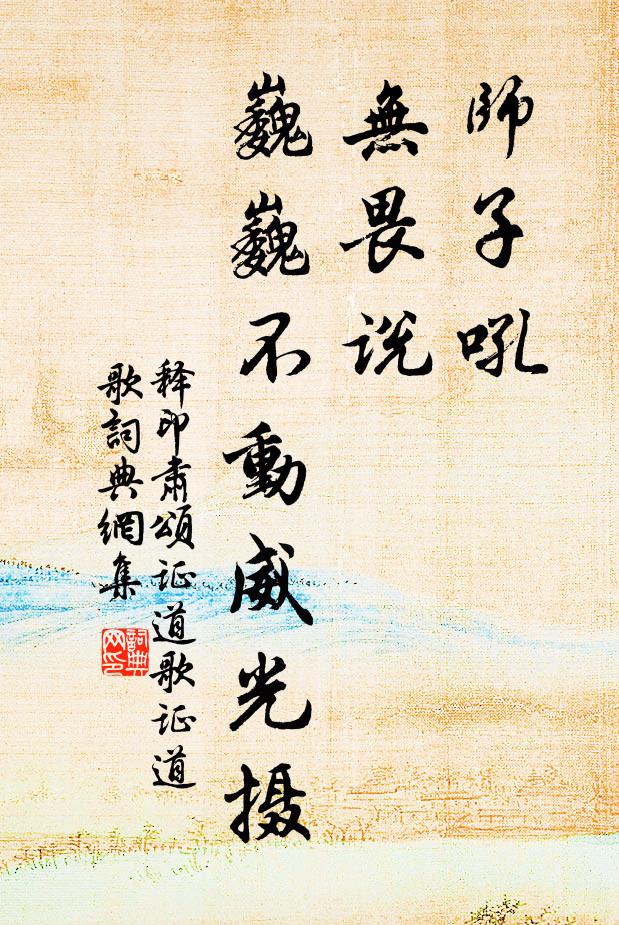 師子吼
無畏説
巍巍不動威光摄
释印肅頌证道歌证道
歌詞典網集
詞典
网印